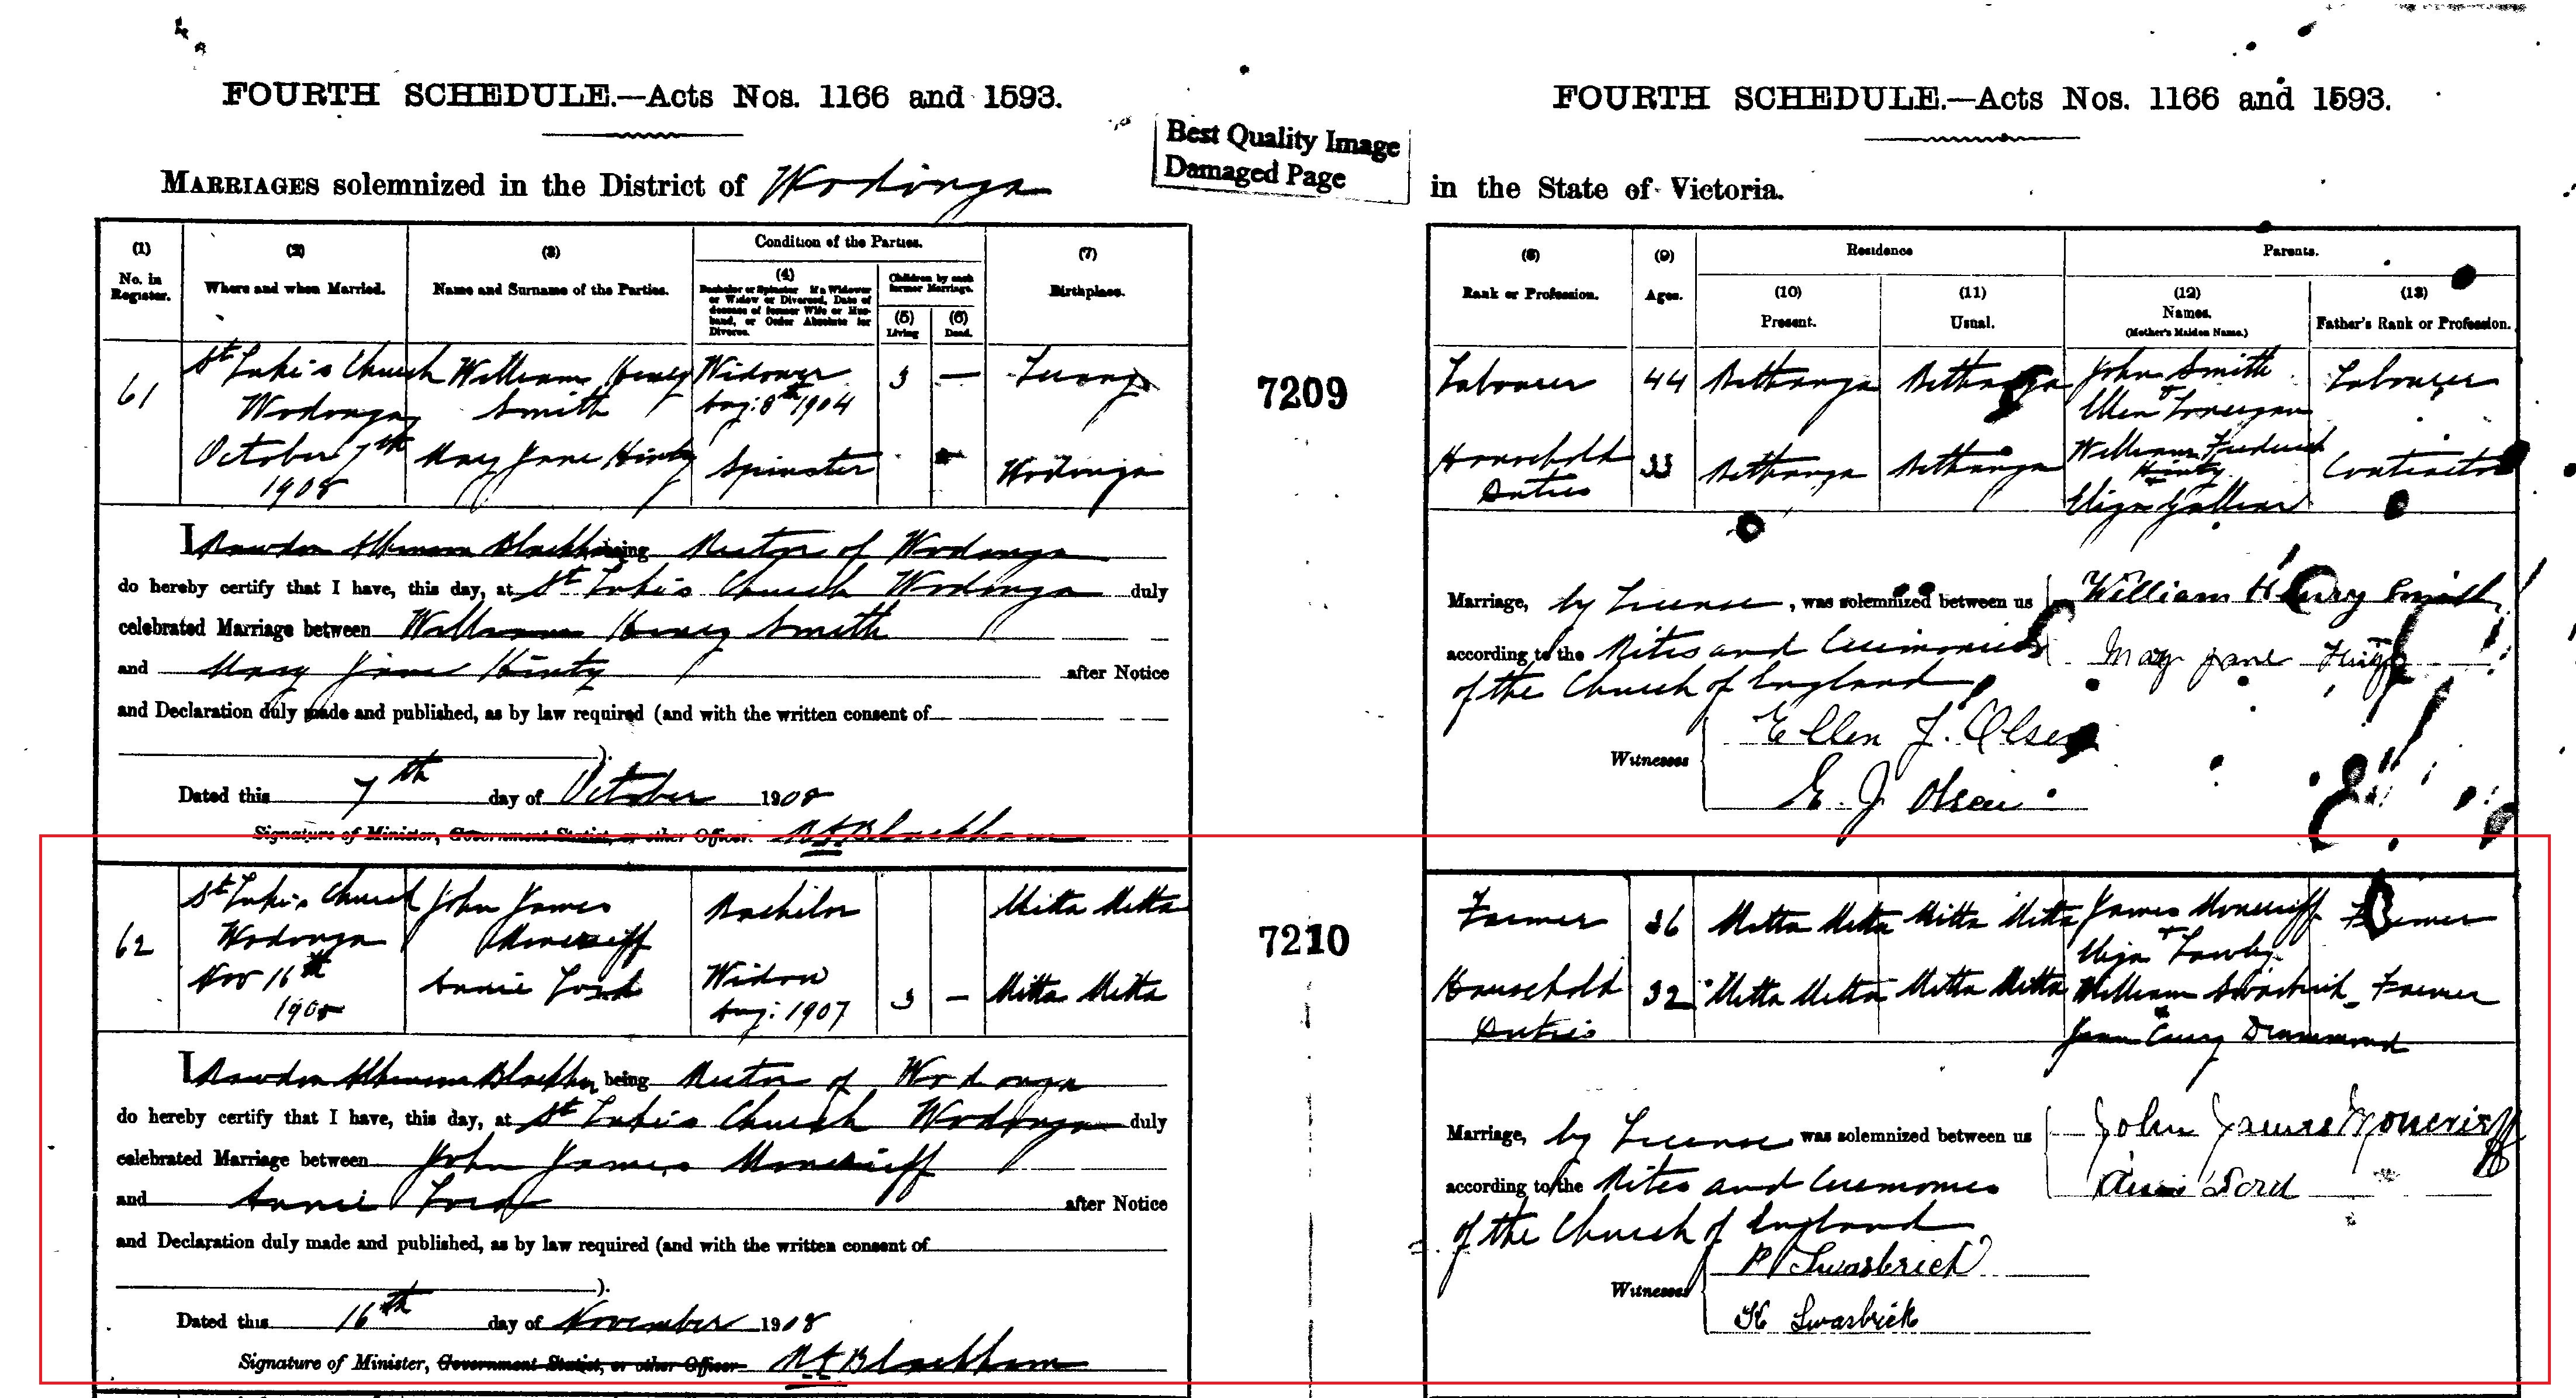 FOURTH SCHEDULE.—Acts Nos. 1166 and 1593.
FOURTH SCHEDULE.—Acts Nos. 1166 and 1593.
Best Quality Image
Damaged Page
MARRIAGES solemnized in the District of Wodonga
in the State of Victoria.
(1) No. in Register.
(2) Where and when Married.
(3) Name and Surname of the Parties.
Condition of the Parties.
(4) Bachelor or Spinster. If a Widower or Widow or Divorced, Date of decease of former Wife or Husband, or Order Absolute for Divorce.
Children by each former Marriage.
(5) Living
(6) Dead.
(7) Birthplace.
(8) Rank or Profession.
(9) Ages.
Residence
(10) Present.
(11) Usual.
Parents.
(12) Names. (Mother's Maiden Name.)
(13) Father's Rank or Profession.
61
St Luke's Church
Wodonga
October 7th
1908
William Henry
Smith
May Jane Hinty
Widower
Aug: 8th 1904
3 —
Spinster
Wodonga
7209
Labourer 44 Bethanga Bethanga
John Smith
Ellen
Labourer
Household
Duties
33 Bethanga Bethanga
William Frederick
Hinty
Eliza
Contractor
I being Rector of Wodonga
do hereby certify that I have, this day, at St Luke's Church Wodonga duly
celebrated Marriage between William Henry Smith
and Mary Jane Hinty after Notice
and Declaration duly made and published, as by law required (and with the written consent of
).
Dated this 7th day of October 1908
Signature of Minister, Government Statist, or other Officer. Blackham
Marriage, by License, was solemnized between us William Henry Smith
according to the Rites and Ceremonies May Jane
of the Church of England
Witnesses
Ellen J. Olsen
E. J Olsen
62
St Luke's Church
Wodonga
Nov 16th
1908
John James
Moncrieff
Annie Lord
Bachelor
Widow
Aug: 1907
3 —
Mitta Mitta
Mitta Mitta
7210
Farmer 36 Mitta Mitta Mitta Mitta
James Moncrieff
Eliza
Farmer
Household
Duties
32 Mitta Mitta Mitta Mitta
William Swasbrick
Drummond
Farmer
I being Rector of Wodonga
do hereby certify that I have, this day, at St Luke's Church Wodonga duly
celebrated Marriage between John James Moncrieff
and Annie Lord after Notice
and Declaration duly made and published, as by law required (and with the written consent of
).
Dated this 16th day of November 1908
Signature of Minister, Government Statist, or other Officer Blackham
Marriage, by License was solemnized between us John James Moncrieff
according to the Rites and Ceremonies Annie Lord
of the Church of England
Witnesses
P Swasbrick
H Swasbrick